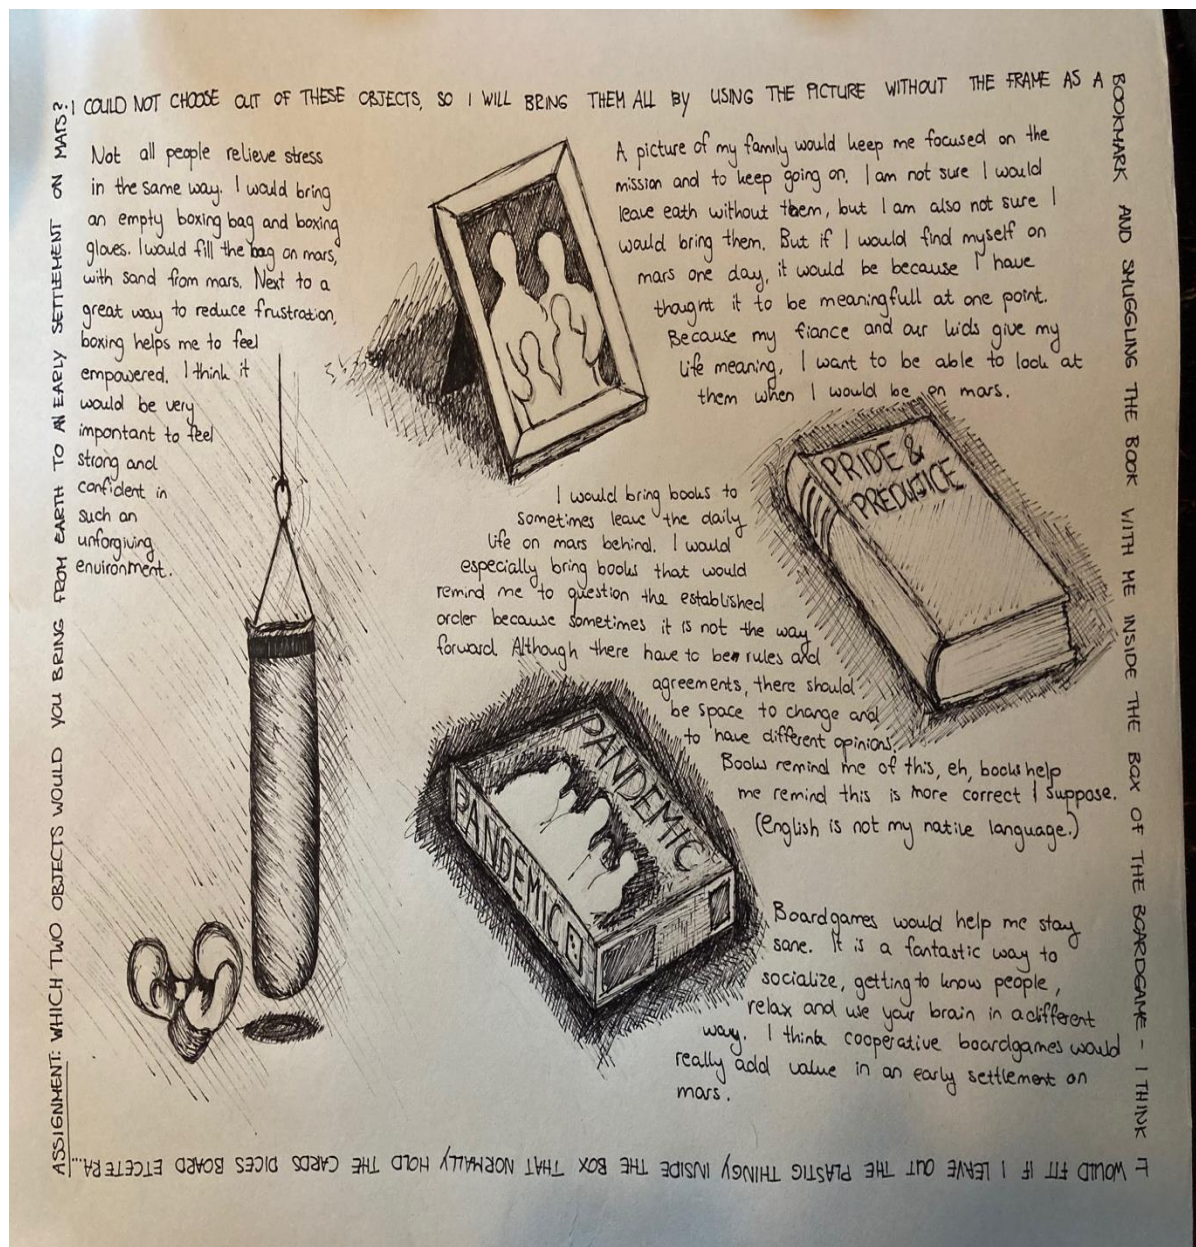 ASSIGNMENT: WHICH TWO OBJECTS WOULD YOU BRING FROM EARTH TO AN EARLY SETTLEMENT ON MARS?
I COULD NOT CHOOSE OUT OF THESE OBJECTS, SO I WILL BRING THEM ALL BY USING THE PICTURE WITHOUT THE FRAME AS A
BOOKMARK AND SMUGGLING THE BOOK WITH ME INSIDE THE BOX OF THE BOARDGAME - I THINK
IT WOULD FIT IF I LEAVE OUT THE PLASTIC THINGY INSIDE THE BOX THAT NORMALLY HOLD THE CARDS DICES BOARD ETCETERA...
Not all people relieve stress
in the same way. I would bring
an empty boxing bag and boxing
gloves. I would fill the bag on mars,
with sand from mars. Next to a
great way to reduce frustration,
boxing helps me to feel
empowered. I think it
would be very
important to feel
strong and
confident in
such an
unforgiving
environment.
A picture of my family would keep me focused on the
mission and to keep going on. I am not sure I would
leave eath without them, but I am also not sure I
would bring them. But if I would find myself on
mars one day, it would be because I have
thought it to be meaningfull at one point.
Because my fiance and our kids give my
life meaning, I want to be able to look at
them when I would be on mars.
PRIDE &
PREDUJICE
I would bring books to
sometimes leave the daily
life on mars behind. I would
especially bring books that would
remind me to question the established
order because sometimes it is not the way
forward. Although there have to be rules and
agreements, there should
be space to change and
to have different opinions.
Books remind me of this, eh, books help
me remind this is more correct I suppose.
(English is not my native language.)
PANDEMIC
PANDEMIC
Boardgames would help me stay
sane. It is a fantastic way to
socialize, getting to know people,
relax and use your brain in a different
way. I think cooperative boardgames would
really add value in an early settlement on
mars.